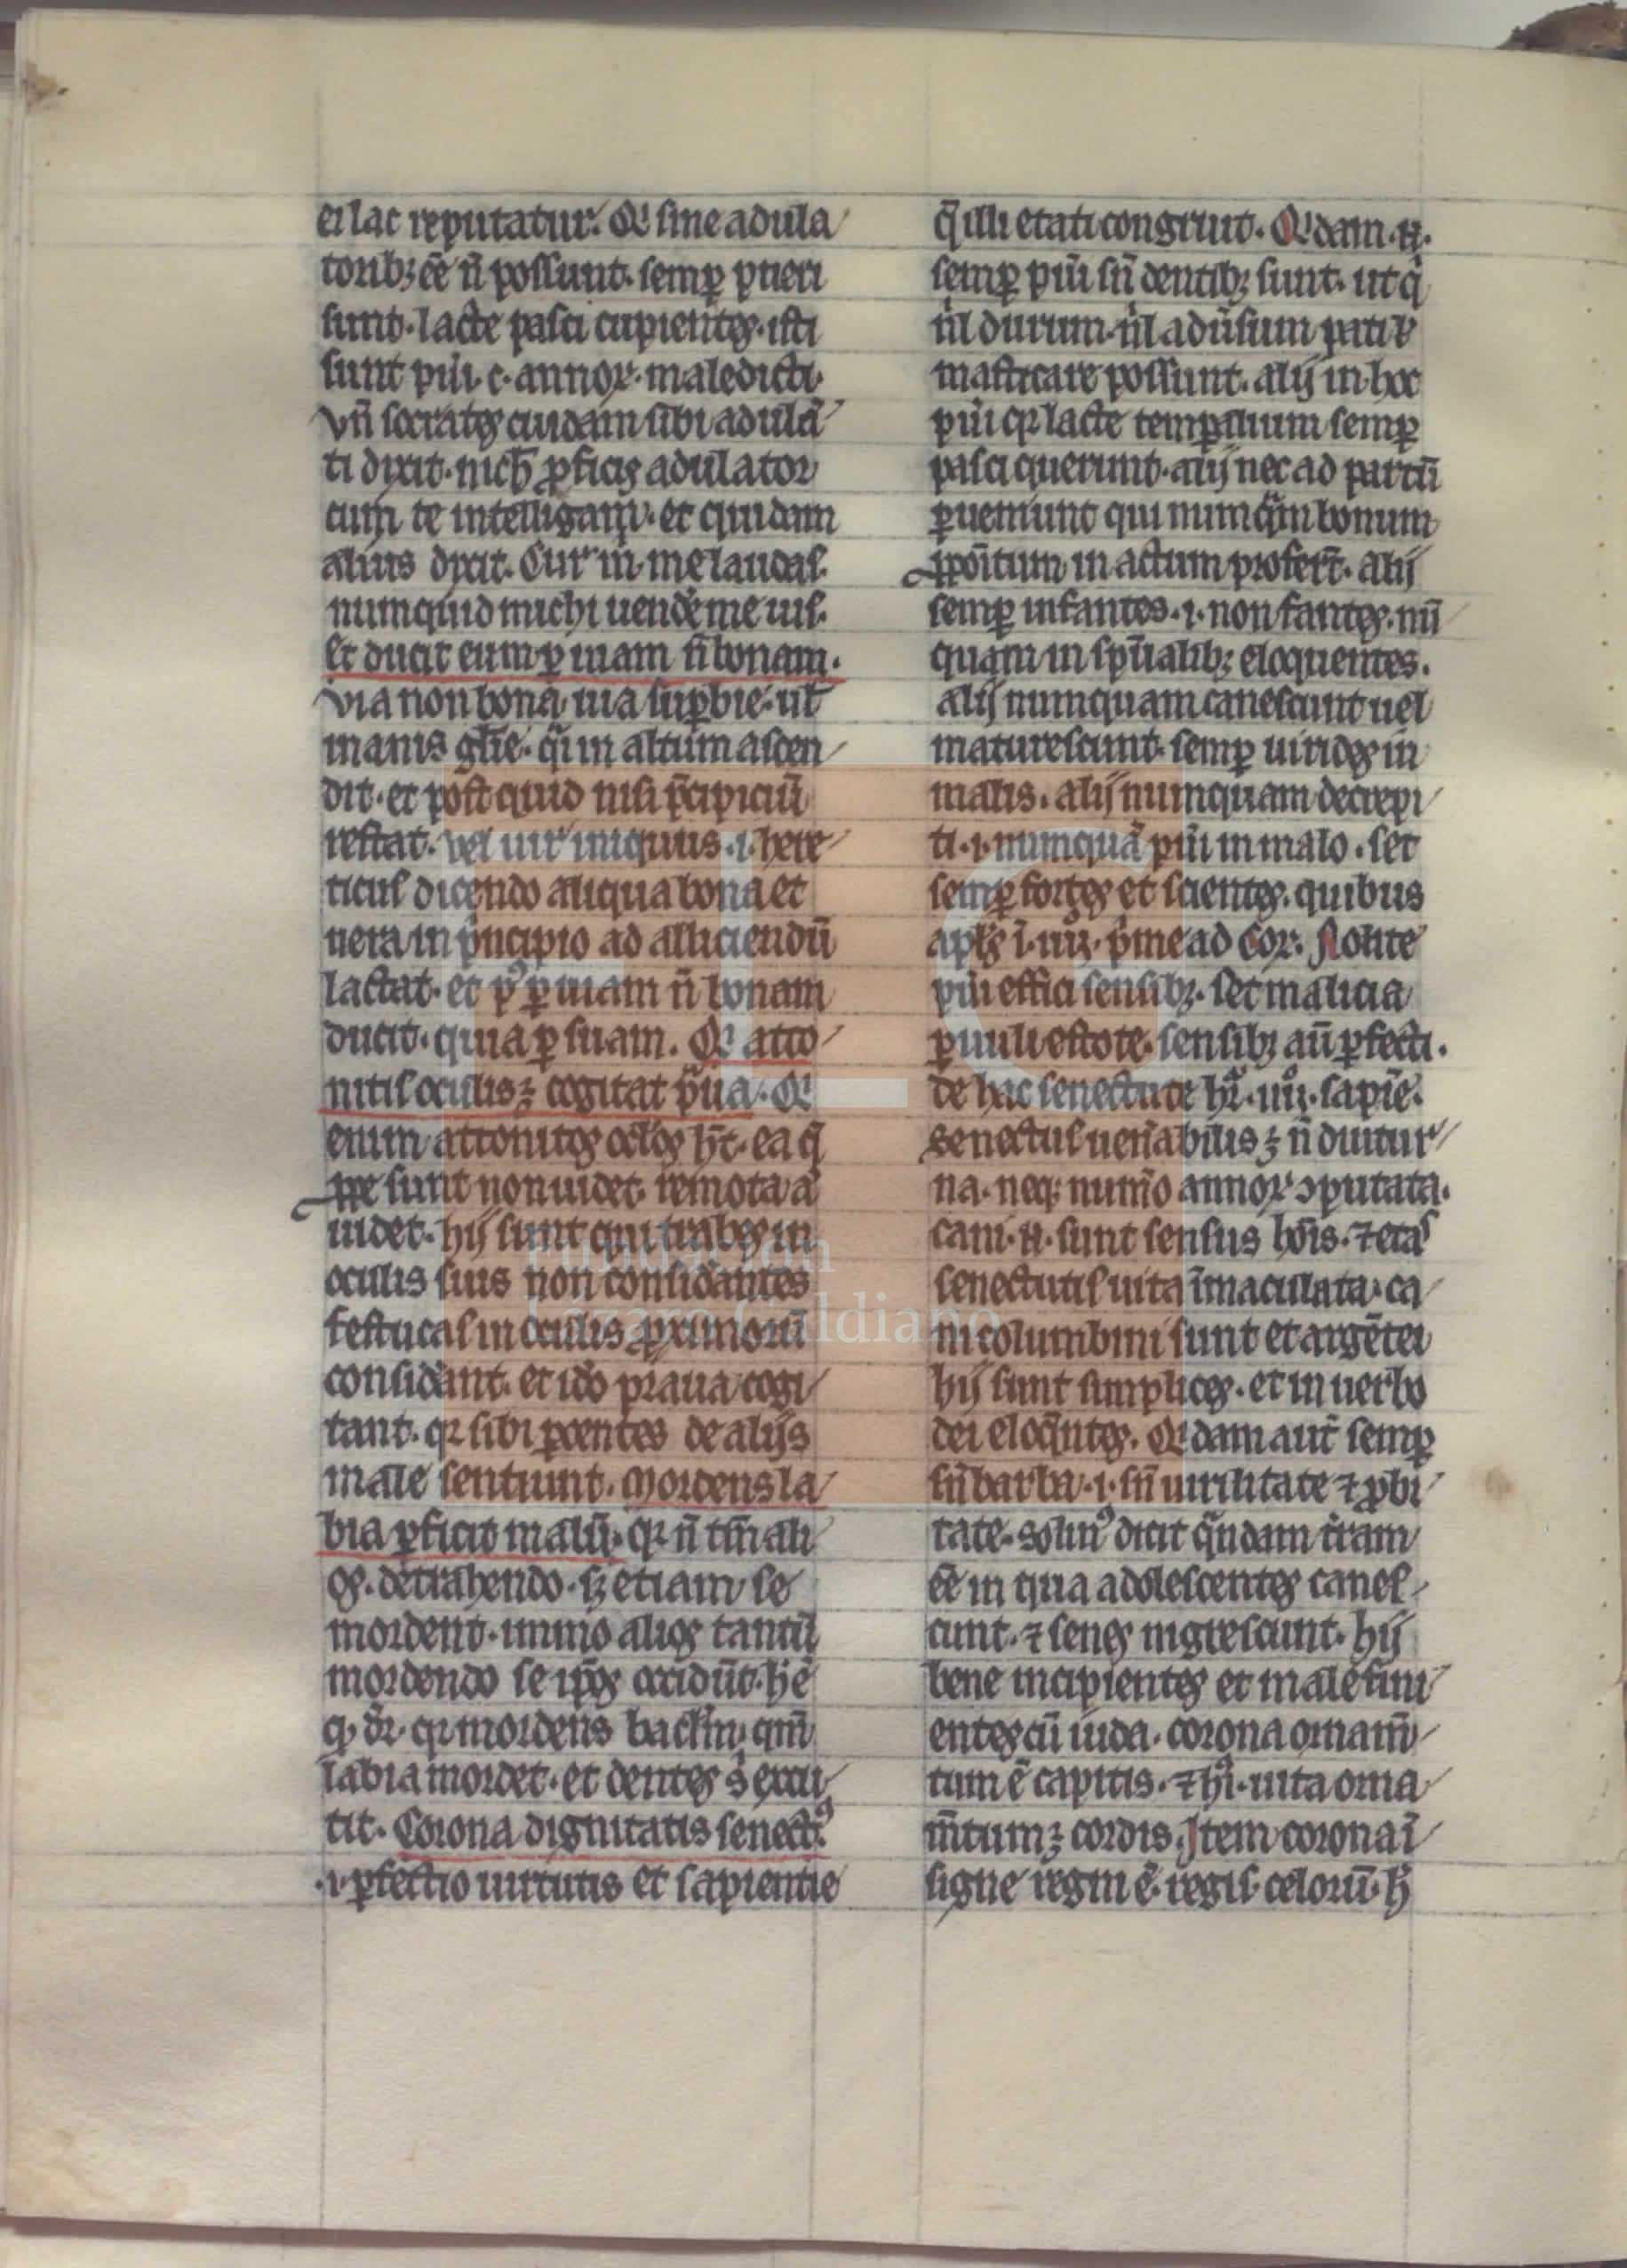 ei lac reputatur. Qi sine adula
torib; eē n̄ possunt. semꝑ pueri
sunt. lacte pasci cupientes. isti
sunt pu̇i. c. annoꝝ. maledicti.
vn̄ socrates cuidam sibi adulā
ti dixit. nich̄ ꝓficis adulator
cum te intelligam. et quidam
alius dixit. Cur in me laudas.
numquid michi uende me uis.
Et ducit eum ꝑ uiam n̄ bonam.
Via non bona uia suꝑbie. ul̄
inanis gl̄ie. q̄ in altum ascen
dit. et post quid nisi p̄cipiciū
restat. vel uir iniquus .i. here
ticus dicendo aliqua bona et
uera in p̄ncipio ad alliciendū
lactat. et pꝰ ꝑ uiam n̄ bonam
ducit. quia ꝑ suam. Qi atto
nitis oculis ꝫ cogitat p̄ua. Qi
enim attonitos oc̄los h̄t. ea q̄
ꝓpe sunt non uidet. remota a
uidet. hij sunt qui trabes in
oculis suis non consid̄antes
festucas in oculis ꝓximorū
consid̄ant. et id̄o praua cogi
tant. qꝛ sibi ꝑcentes de alijs
male sentiunt. Mordens la
bia ꝑficit malū. qꝛ n̄ tm̄ ali
os. detrahendo. sꝫ etiam se
mordent. immo alios tantū
mordendo se ip̄os occidūt. h̄ ē
qͩ d̄r. qꝛ mordens baclm̄. qm̄
labia mordet. et dentes s̄ excu
tit. Corona dignitatis senectꝰ.
.i. ꝑfectio uirtutis et sapientie
q̄ illi etati congruit. Qidam .n.
semꝑ pu̇i sn̄ dentib; sunt. ut q̄
nl̄ durum. nl̄ adūsum pati ł
masticare possunt. alij in hoc
pu̇i qꝛ lacte temꝑalium semꝑ
pasci querunt. alij nec ad partū
ꝑueniunt qui numq̄m bonum
ꝓpōitum in actum profert̄. alij
semꝑ infantes .i. non fantes. nū
quam in sp̄ualib; eloquentes.
alij numquam canescunt uel
maturescunt. semꝑ uirides in
malis. alij numquam decrepi
ti .i. numquā pu̇i in malo. set
semꝑ fortes et scientes. quibus
apl̄s .i. iiij. p̄me ad Cor. Nolite
pu̇i effici sensib;. set malicia
ꝑuuli estote. sensib; aū ꝑfecti.
de hac senectute hr̄. iiij. sapīe.
Senectus uen̄abilis ꝫ n̄ diutur
na. neq; num̄o annoꝝ ꝯputata.
cani .n. sunt sensus hōis. ⁊ etas
senectutis uita īmaculata. ca
ni columbini sunt et argētei
hij sunt simplices. et in uerbo
dei eloq̄ntes. Qidam aut̄ semꝑ
sn̄ barba .i. sn̄ uirilitate ⁊ ꝓbi
tate. Solinꝰ dicit q̄ndam tr̄am
eē in qua adolescentes canes
cunt. ⁊ senes nigrescunt. hij
bene incipientes et male fini
entes cū iuda. corona ornam̄
tum ē capitis. ⁊ hͥ. uita orna
m̄tum ꝫ cordis. Item corona ī
signe regni ē. regis celorū. h̄